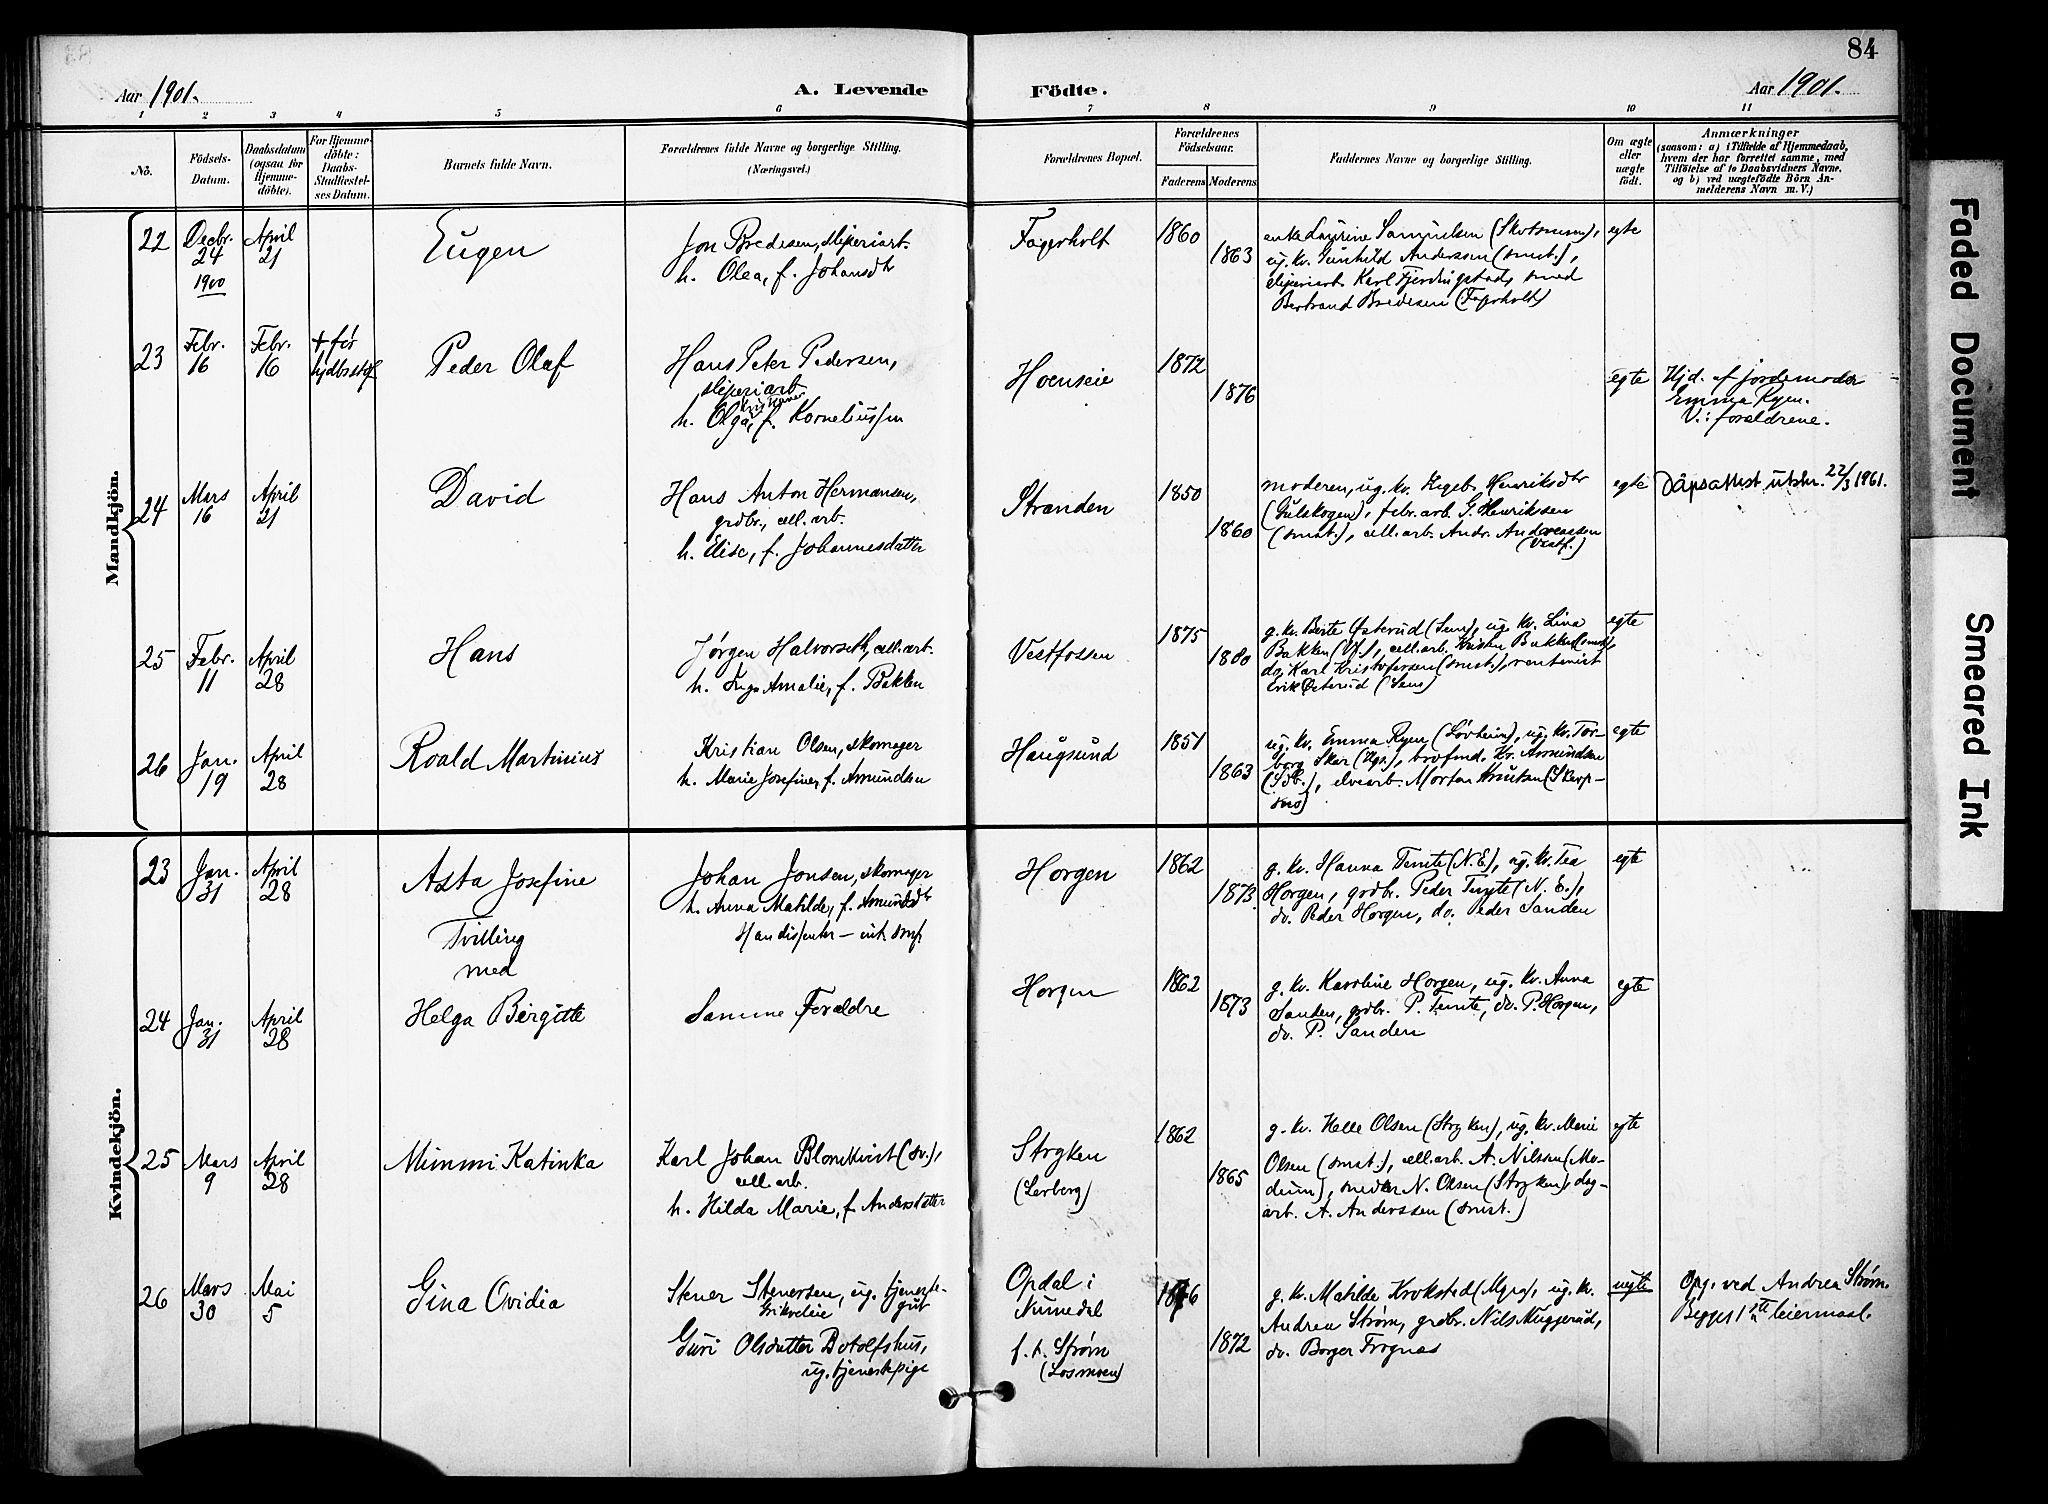 84
Aar 1901.
A. Levende Födte.
Aar 1901.
1 2 3 4 5 6 7 8 9 10 11
No.
Födsels-
Datum.
Daabsdatum
(ogsaa for
Hjemme-
döbte).
For Hjemme-
döbte:
Daabs-
Stadfæstel-
ses Datum.
Barnets fulde Navn.
Forældrenes fulde Navne og borgerlige Stilling.
(Næringsvei.)
Forældrenes Bopæl.
Forældrenes
Födselsaar.
Faderens
Moderens
Faddernes Navne og borgerlige Stilling.
Om ægte
eller
uægte
födt.
Anmærkninger
(saasom: a) i Tilfælde af Hjemmedaab,
hvem der har forrettet samme, med
Tilföielse af to Daabsvidners Navne,
og b) ved uægtefödte Börn An-
melderens Navn m. V.)
Mandkjön.
22
Decbr.
24
1900
April
21
Eugen
Jon Bredesen, sliperiarb.
h. Olea, f. Johansdtr
Fagerholt
1860
1863
enke Laurine Samuelsen (Skotsmoen),
ug. kv. Gunhild Anderssen (smst.),
sliperiarb. Karl Fjerdingstad, smed
Bertrand Bredesen (Fagerholt)
egte
23
Febr.
16
Febr.
16
+ før
Peder Olaf
Hans Peter Pedersen,
sliperiarb.
h. Olga, f. Korneliussen
Hoenseie
1872
1876
egte
Hjd. af jordemoder
Emma Ryen.
V.: foreldrene.
24
Mars
16
April
21
David
Hans Anton Hermansen,
grdbr., cell. arb.
h. Elise, f. Johannesdatter
Stranden
1850
1860
moderen, ug. kv. Ingeb. Henriksdtr
(Gulskogen), febr. arb. G. Henriksen
(smst.), cell. arb. Andr. Andreassen
(Vestf.)
egte
Dåpsattest utstr. 22/3 1961.
25
Febr.
11
April
28
Hans
Jørgen Halvorseth, cell. arb.
h. Inga Amalie, f. Bakken
Vestfossen
1875
1880
g. kv. Berte Østerud (Sem), ug. kv. Lina
Bakken (Vf.), cell. arb. Kristen Bakken (smst.),
do. Karl Kristofersen (smst.), rentenist
Erik Østerud (Sem)
egte
26
Jan.
19
April
28
Roald Martinius
Kristian Olsen, skomager
h. Marie Josefine, f. Amundsen
Haugsund
1851
1863
ug. kv. Emma Ryen (Løvheim), ug. kv. Tor-
borg Skar (Hgs.), brofmd. Kr. Amundsen
elvearb. Morten Knutsen (Skarp-
snes)
egte
Kvindekjön.
23
Jan.
31
April
28
Asta Josefine
Tvilling
med
Johan Jonsen, skomager
h. Anna Matilde, f. Amundsdtr
Horgen
1862
1873
g. kv. Hanna Temte (N. E.), ug. kv. Tea
Horgen, grdbr. Peder Temte (N. E.),
do. Peder Horgen, do. Peder Sanden
egte
24
Jan.
31
April
28
Helga Birgitte
Samme Foreldre
Horgen
1862
1873
g. kv. Karoline Horgen, ug. kv. Anna
Sanden, grdbr. P. Temte, do. P. Horgen,
do. P. Sanden
egte
25
Mars
9
April
28
Mimmi Katinka
Karl Johan Blomkvist (sv.),
cell. arb.
h. Hilda Marie, f. Andersdatter
Stryken
(Lerberg)
1862
1865
g. kv. Helle Olsen (Stryken), ug. kv. Marie
Olsen (smst.), cell. arb. A. Nilssen (Mo-
dum), snedker N. Olsen (Stryken), dag-
arb. A. Anderssen (smst.)
egte
26
Mars
30
Mai
5
Gina Ovidia
Stener Stenersen, ug. tjeneste-
gut
Guri Olsdatter Botolfshus,
ug. tjenestepige
Opdal i
Numedal
f. t. Strøm
(Losmoen)
1876
1872
g. kv. Matilde Krokstad (Myra), ug. kv.
Andrea Strøm, grdbr. Nils Muggerud,
do. Borger Frognæs
uegte
Opg. ved Andrea Strøm.
Begges 1ste leiermaal.
Faded Document
Smeared Ink